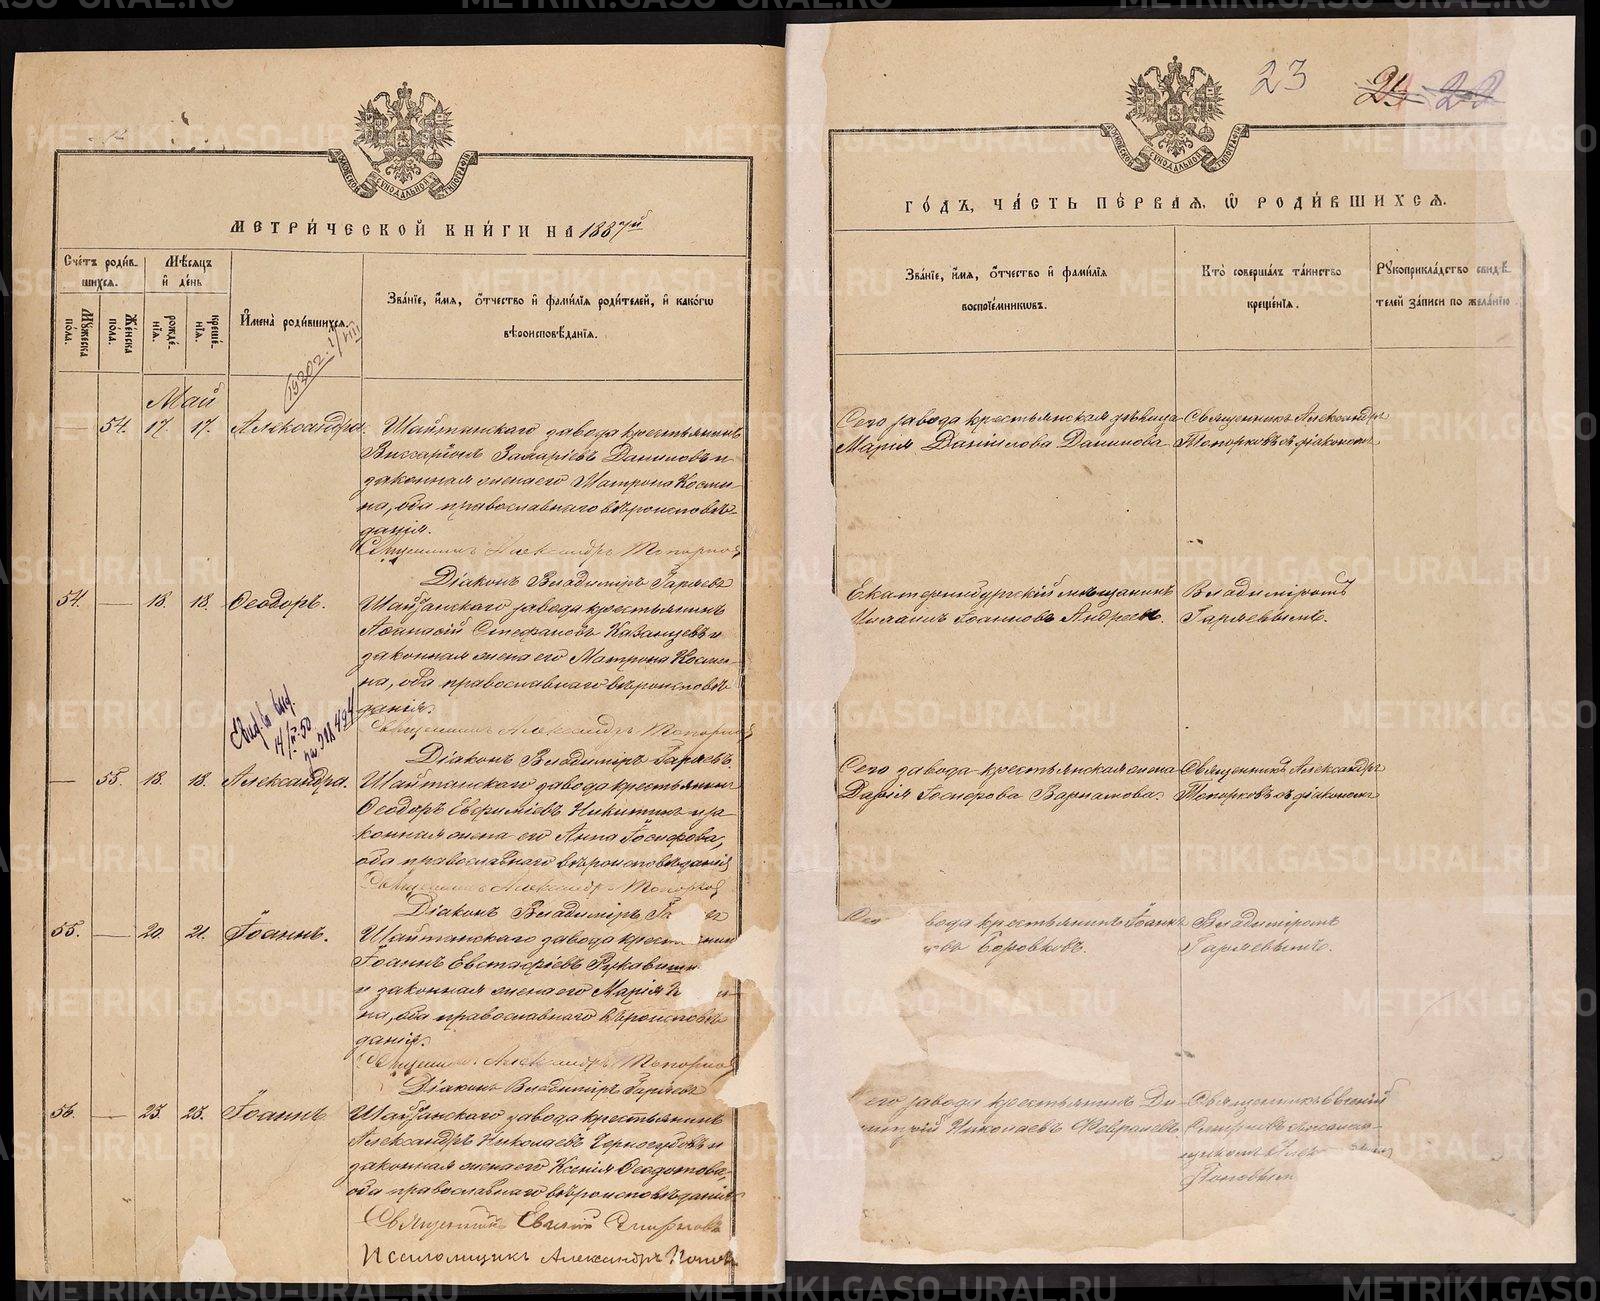 МЕТРИ́ЧЕСКОЙ КНИ́ГИ НА 1887й
Сче́тъ роди́в-
шихся.
Мѣсяцъ
и҆ де́нь
Мꙋжеска
по́ла.
Женска
по́ла.
рожде́-
нїя.
креще́-
нїя.
И҆мена̀ роди́вшихся.
Зва́нїе, и҆мя, ѻ҆́тчество и҆ фами́лїя роди́телей, и҆ како́гѡ
вѣроисповѣ́данїя.
Май
54. 17. 17. Александра. Шайтанскаго завода крестьянинъ
Виссаріонъ Захаріевъ Даниловъ и
законная жена его Матрона Косми-
на, оба православнаго вѣроисповѣ-
данія.
Священникъ Александръ Топорков
Діаконъ Владиміръ Гаряевъ
54. 18. 18. Ѳеодоръ. Шайтанскаго завода крестьянинъ
Аѳанасій Стефановъ Казанцевъ и
законная жена его Матрона Косми-
на, оба православнаго вѣроисповѣ-
данія.
Священникъ Александръ Топорков
Діаконъ Владиміръ Гаряевъ
55. 18. 18. Александра. Шайтанскаго завода крестьянинъ
Ѳеодоръ Евфиміевъ Никитинъ и за-
конная жена его Анна Іосифова,
оба православнаго вѣроисповѣданія
Священникъ Александръ Топорков
Діаконъ Владиміръ Га
55. 20. 21. Іоаннъ. Шайтанскаго завода крест
Іоаннъ Евстафіевъ Рукавишн
и законная жена его Марія
на, оба православнаго вѣроисповѣ-
данія.
Священникъ Александръ Топорков
Діаконъ Владиміръ Гаряевъ
56. 23. 23. Іоаннъ Шайтанскаго завода крестьянинъ
Александръ Николаевъ Черногубовъ и
законная жена его Ксенія Ѳеодотова,
оба православнаго вѣроисповѣданія
Священникъ Евгеній Смирновъ
Псаломщикъ Александръ Попов
23
24 22
ГО́ДЪ, ЧА́СТЬ ПЕ́РВАЯ, Ѡ҆ РОДИ́ВШИХСЯ.
Зва́нїе, и҆мя, ѻ҆́тчество и҆ фами́лїя
воспрїе́мниковъ.
Кто̀ соверша́лъ та́инство
креще́нїя.
Рꙋкоприкла́дство свидѣ́-
телей за́писи по жела́нїю.
Сего завода крестьянская дѣвица
Марія Даниилова Данилова
Священникъ Александръ
Топорковъ съ діакономъ
Екатеринбургскій мѣщанинъ
Іоанновъ
Владиміромъ
Гаряевымъ.
Сего завода крестьянская жена
Дарія Іосифова Варламова.
Священникъ Александръ
Топорковъ съ діакономъ
вода крестьянинъ Іоаннъ
Боровковъ.
Владиміромъ
Гаряевымъ.
его завода крестьянинъ Ди-
митрій Николаевъ Февралевъ.
Священникъ Евгеній
Смирновъ съ псалом-
щикомъ Алек
Поповымъ
METRIKI.GASO-URAL.RU